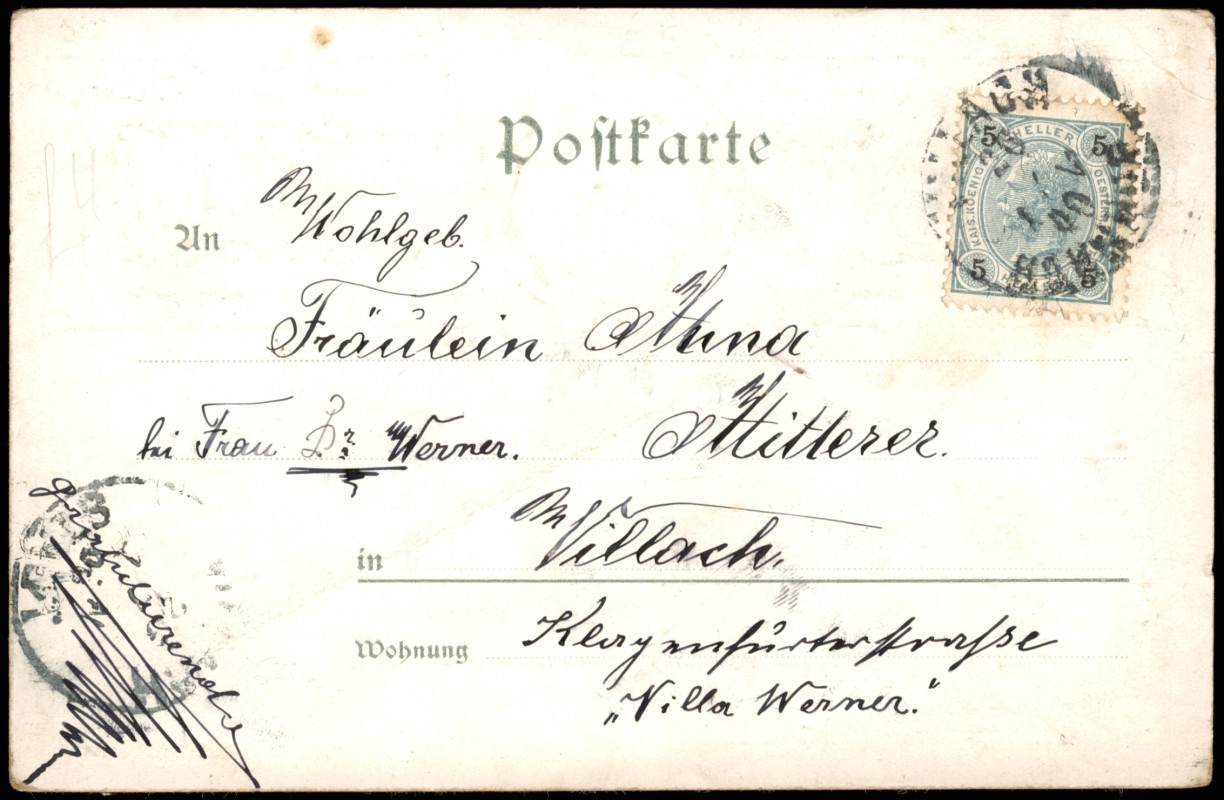 Postkarte
An Wohlgeb.
Fräulein Anna
bei Frau Dr. Werner. Mitterer.
in Villach.
Wohnung Klagenfurterstraße
"Villa Werner."
gratulirend
5 HELLER 5
KAIS. KOENIGL. OESTERR.
5 5